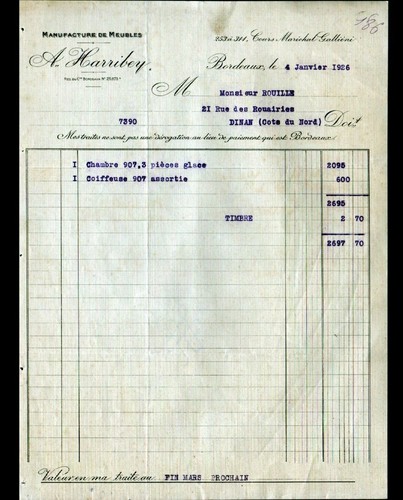 186
MANUFACTURE DE MEUBLES
253 à 311, Cours Maréchal Galliéni
A. Harribey
Bordeaux, le 4 Janvier 1926
M Monsieur ROUILLE
21 Rue des Rouairies
7390 DINAN (Cote du Nord) Doit
Mes traites ne sont pas une dérogation au lieu de paiement qui est Bordeaux
1 Chambre 907,3 pièces glace 2095
1 Coiffeuse 907 assortie 600
2695
TIMBRE 2 70
2697 70
Valeur en ma traite au FIN MARS PROCHAIN